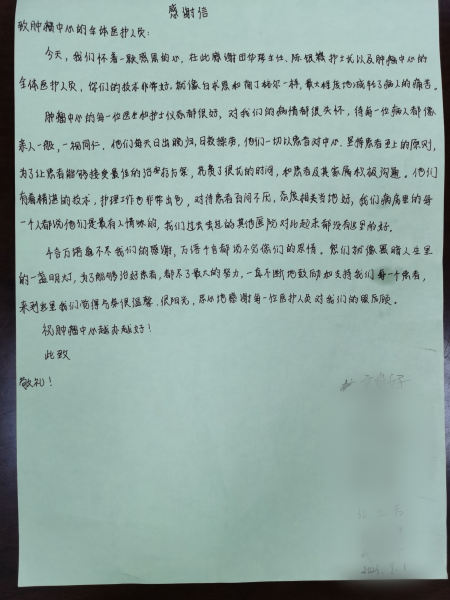 感谢信
致肿瘤中心的全体医护人员:
今天,我们怀着一颗感恩的心,在此感谢田华琴主任、陈银娥护士长以及肿瘤中心的
全体医护人员,你们的技术非常好。就像白求恩和南丁格尔一样,最大程度地减轻了病人的痛苦。
肿瘤中心的每一位医生和护士仪态都很好,对我们的病情都很关怀,待每一位病人都像
亲人一般,一视同仁。他们每天日出晚归,日夜操劳,他们一切以患者对中心、坚持患者至上的原则,
为了让患者能够接受最佳的治疗方案,花费了很长的时间,和患者及其家属积极沟通。他们
有着精湛的技术,护理工作也非常出色,对待患者百问不厌,态度相当地好,我们病房里的每
一个人都说他们是最有人情味的,我们过去去过的其他医院对比起来都没有这里的好。
千言万语道不尽我们的感谢,万语千言都说不完你们的恩情。您们就像黑暗人生里
的一盏明灯,为了能够治好患者,都尽了最大的努力,一直不断地鼓励和支持我们每一个患者,
来到这里我们觉得与爱很温馨、很阳光,衷心地感谢每一位医护人员对我们的照顾。
祝肿瘤中心越办越好!
此致
敬礼!